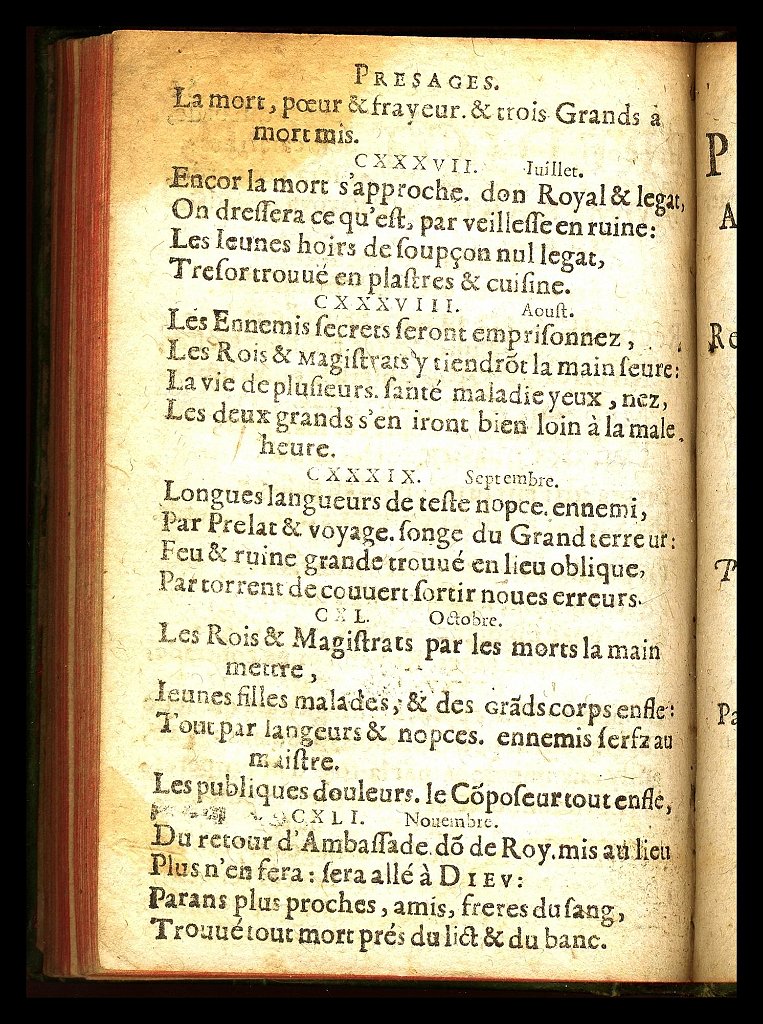 PRESAGES.
La mort, pœur & frayeur. & trois Grands à
mort mis.
CXXXVII. Juillet.
Encor la mort s'approche. don Royal & legat,
On dreſſera ce qu'eſt, par veilleſſe en ruine:
Les Ieunes hoirs de ſoupçon nul legat,
Treſor trouué en plaſtres & cuiſine.
CXXXVIII. Aouſt.
Les Ennemis ſecrets ſeront empriſonnez,
Les Rois & Magiſtrats y tiendrõt la main ſeure:
La vie de pluſieurs. ſanté maladie yeux, nez,
Les deux grands s'en iront bien loin à la male
heure.
CXXXIX. Septembre.
Longues langueurs de teſte nopce. ennemi,
Par Prelat & voyage. ſonge du Grand terreur:
Feu & ruine grande trouué en lieu oblique,
Par torrent de couuert ſortir noues erreurs.
CXL. Octobre.
Les Rois & Magiſtrats par les morts la main
mettre,
Ieunes filles malades, & des Grãds corps enfle:
Tout par langeurs & nopces. ennemis ſerfz au
maiſtre.
Les publiques douleurs. le Cõpoſeur tout enflé,
CXLI. Nouembre.
Du retour d'Ambaſſade. dõ de Roy. mis au lieu
Plus n'en fera: ſera allé à DIEV:
Parans plus proches, amis, freres du ſang,
Trouué tout mort prés du lict & du banc.
P
A
Re
P
Pa